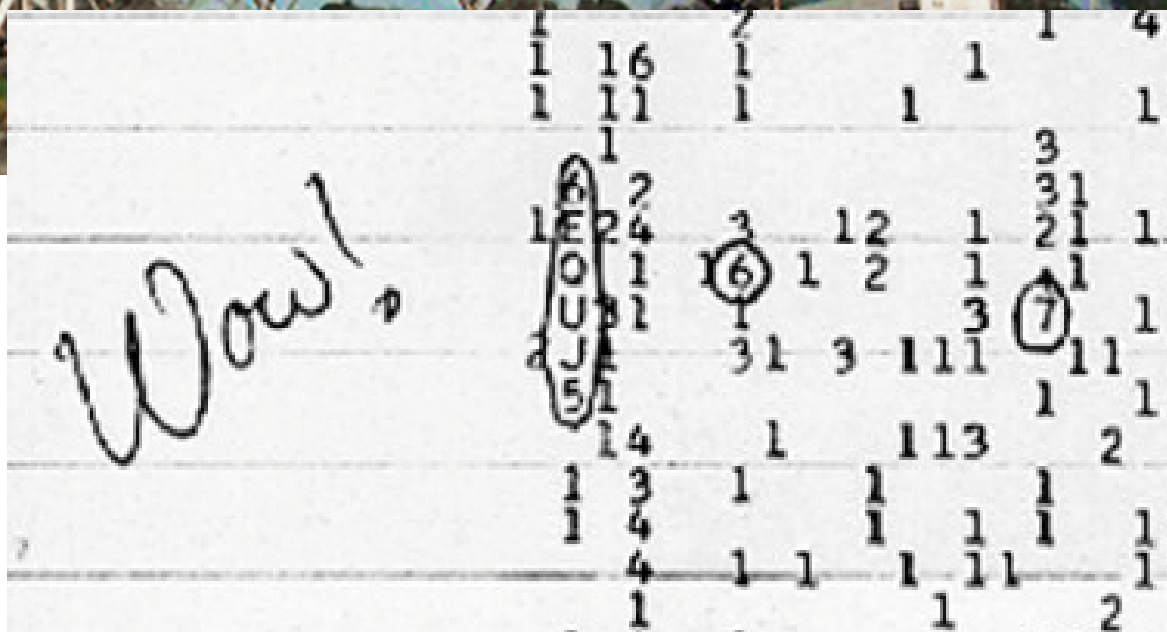 1 2 1 4
1 16 1 1
1 11 1 1 1
1 3
6 2 31
1E24 3 12 1 21 1
Wow!
Q 1 16 1 2 1 1
U31 1 3 7 1
2J 31 3 111 11
51 1 1
14 1 113 2
1 3 1 1 1
1 4 1 1 1 1
4 1 1 1 11 1
1 1 2